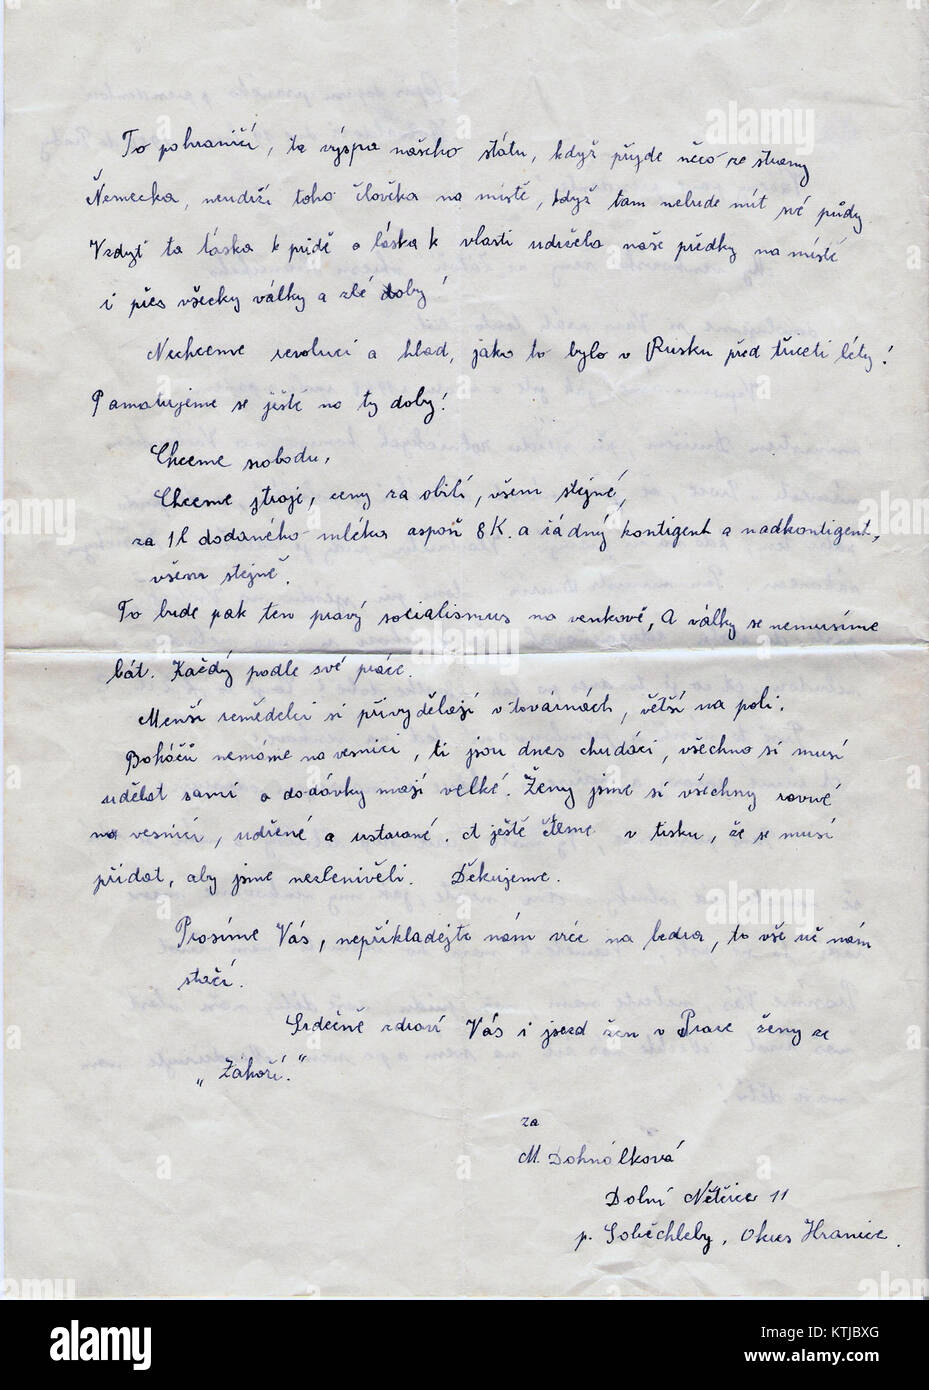 To pohraničí, ta výspa našeho státu, když přijde něco ze strany
Německa, neudrží toho člověka na místě, když tam nebude mít své půdy.
Vzdyť ta láska k půdě a láska k vlasti udržela naše předky na místě
i přes všecky války a zlé doby!
Nechceme revoluci a hlad, jako to bylo v Rusku před třiceti léty!
Pamatujeme se ještě na ty doby!
Chceme svobodu,
Chceme stroje, ceny za obilí, všem stejné,
za 1l dodaného mléka aspoň 8 K. a řádný kontigent a nadkontigent,
všem stejně.
To bude pak ten pravý socialismus na venkově, A války se nemusíme
bát. Každý podle své práce.
Menší zemědelci si přivydělají v továrnách, větší na poli.
Boháčů nemáme na vesnici, ti jsou dnes chudáci, všechno si musí
udělat sami a dodávky mají velké. Ženy jsme si všechny rovné
na vesnici, udřené a ustarané. A ještě čteme v tisku, že se musí
přidat, aby jsme nezlenivěli. Děkujeme.
Prosíme Vás, nepřikladejte nám více na bedra, to vše už nám
stačí.
Srdečně zdraví Vás i jzezd žen v Praze ženy ze
„Záhoří."
za
M. Dohnálková
Dolní Nětčice 11
p. Soběchleby, Okres Hranice.
alamy
Image ID: KTJBXG
www.alamy.com